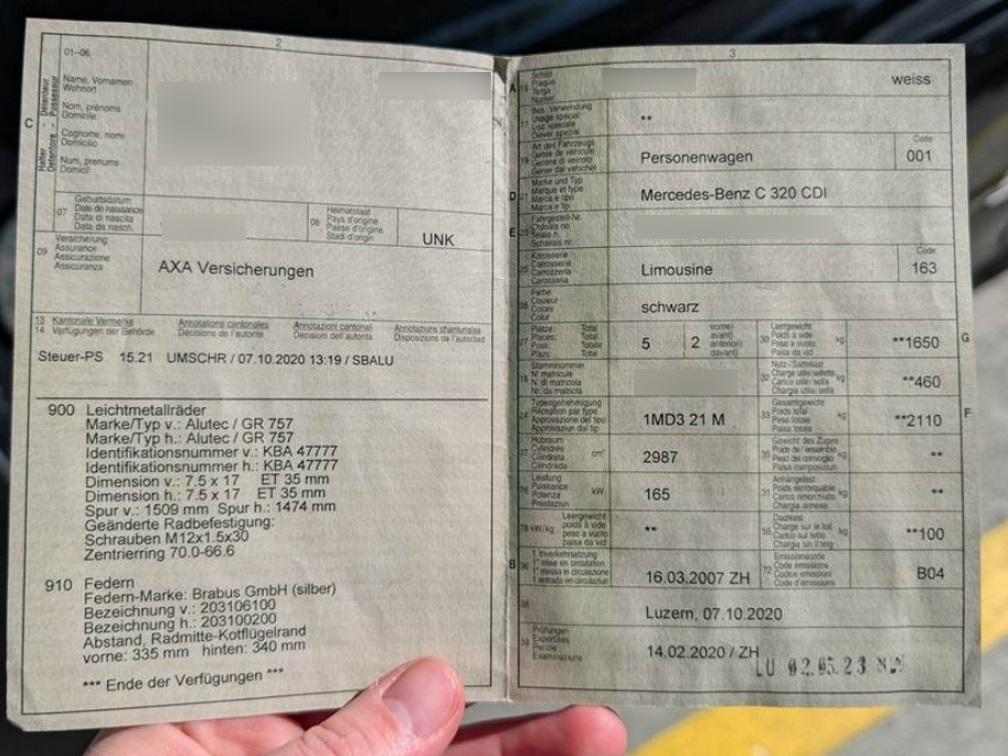 2
01-06
C
Halter - Détenteur
Detentore - Possessur
Name, Vornamen
Wohnort
Nom, prénoms
Domicile
Cognome, nomi
Domicilio
Num, prenums
Domicil
07
Geburtsdatum
Date de naissance
Data di nascita
Data da nasch.
08
Heimatstaat
Pays d'origine
Paese d'origine
Stadi d'origin
UNK
09
Versicherung
Assurance
Assicurazione
Assicuranza
AXA Versicherungen
13 Kantonale Vermerke Annotations cantonales Annotazioni cantonali Annotaziuns chantunalas
14 Verfügungen der Behörde Décisions de l'autorité Decisioni dell'autorità Disposiziuns da l'autoritad
Steuer-PS 15.21 UMSCHR / 07.10.2020 13:19 / SBALU
900 Leichtmetallräder
Marke/Typ v.: Alutec / GR 757
Marke/Typ h.: Alutec / GR 757
Identifikationsnummer v.: KBA 47777
Identifikationsnummer h.: KBA 47777
Dimension v.: 7.5 x 17 ET 35 mm
Dimension h.: 7.5 x 17 ET 35 mm
Spur v.: 1509 mm Spur h.: 1474 mm
Geänderte Radbefestigung:
Schrauben M12x1.5x30
Zentrierring 70.0-66.6
910 Federn
Federn-Marke: Brabus GmbH (silber)
Bezeichnung v.: 203106100
Bezeichnung h.: 203100200
Abstand, Radmitte-Kotflügelrand
vorne: 335 mm hinten: 340 mm
*** Ende der Verfügungen ***
3
A 15
Schild
Plaque
Targa
Numer
weiss
17
Bes. Verwendung
Usage spécial
Uso speciale
Diever spezial
**
19
Art des Fahrzeugs
Genre de véhicule
Genere di veicolo
Gener dal vehichel
Personenwagen
Code
001
D 21
Marke und Typ
Marque et type
Marca e tipo
Marca e tip
Mercedes-Benz C 320 CDI
E 23
Fahrgestell-Nr.
Châssis no
Telaio n.
Schassis nr.
25
Karosserie
Carrosserie
Carrozzeria
Carossaria
Limousine
Code
163
26
Farbe
Couleur
Colore
Colur
schwarz
27
Plätze: Total
Places: Total
Posti: Totale
Plazs: Total
5
2
vorne)
avant)
anteriori)
davant)
30
Leergewicht
Poids à vide
Peso a vuoto
Paisa da vid
kg
**1650
G
18
Stammnummer
N° matricule
N. di matricola
Nr. da matricla
32
Nutz-/Sattellast
Charge utile/sellette
Carico utile/sella
Chargia utila/sella
kg
**460
24
Typengenehmigung
Réception par type
Approvazione del tipo
Approvaziun dal tip
1MD3 21 M
33
Gesamtgewicht
Poids total
Peso totale
Paisa totala
kg
**2110
F
37
Hubraum
Cylindrée
Cilindrata
Cilindrada
cm³
2987
Gewicht des Zuges
Poids de l'ensemble
Peso del convoglio
Paisa cumposiziun
kg
**
76
Leistung
Puissance
Potenza
Prestaziun
kW
165
31
Anhängelast
Poids remorquable
Carico rimorchiato
Chargia annexa
kg
**
78 kW/kg
Leergewicht
poids à vide
peso a vuoto
paisa da vid
**
55
Dachlast
Charge sur le toit
Carico sul tetto
Chargia sin il tetg
kg
**100
B 36
1. Inverkehrsetzung
1re mise en circulation
1a messa in circolazione
1. entrada en circulaziun
16.03.2007 ZH
72
Emissionscode
Code émissions
Codice emissioni
Code d'emissiuns
B04
38
Luzern, 07.10.2020
39
Prüfungen
Expertises
Perizie
Examinaziuns
14.02.2020 / ZH
LU 02.05.23